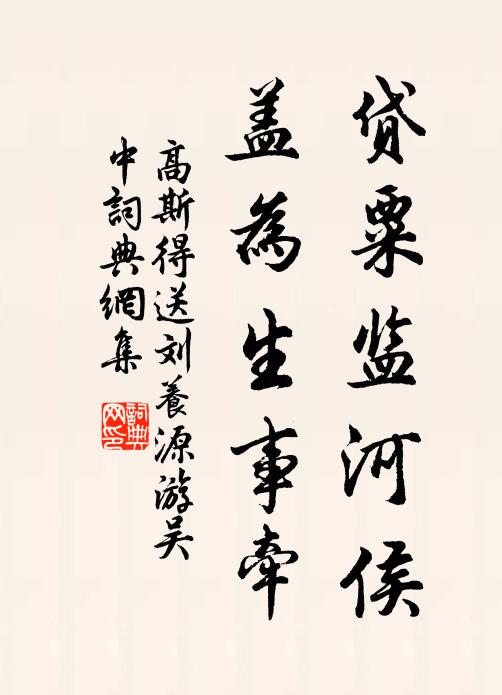 贷粟监河侯
盖为生事牵
高斯得送刘養源游吴
中詞典網集
詞典网印